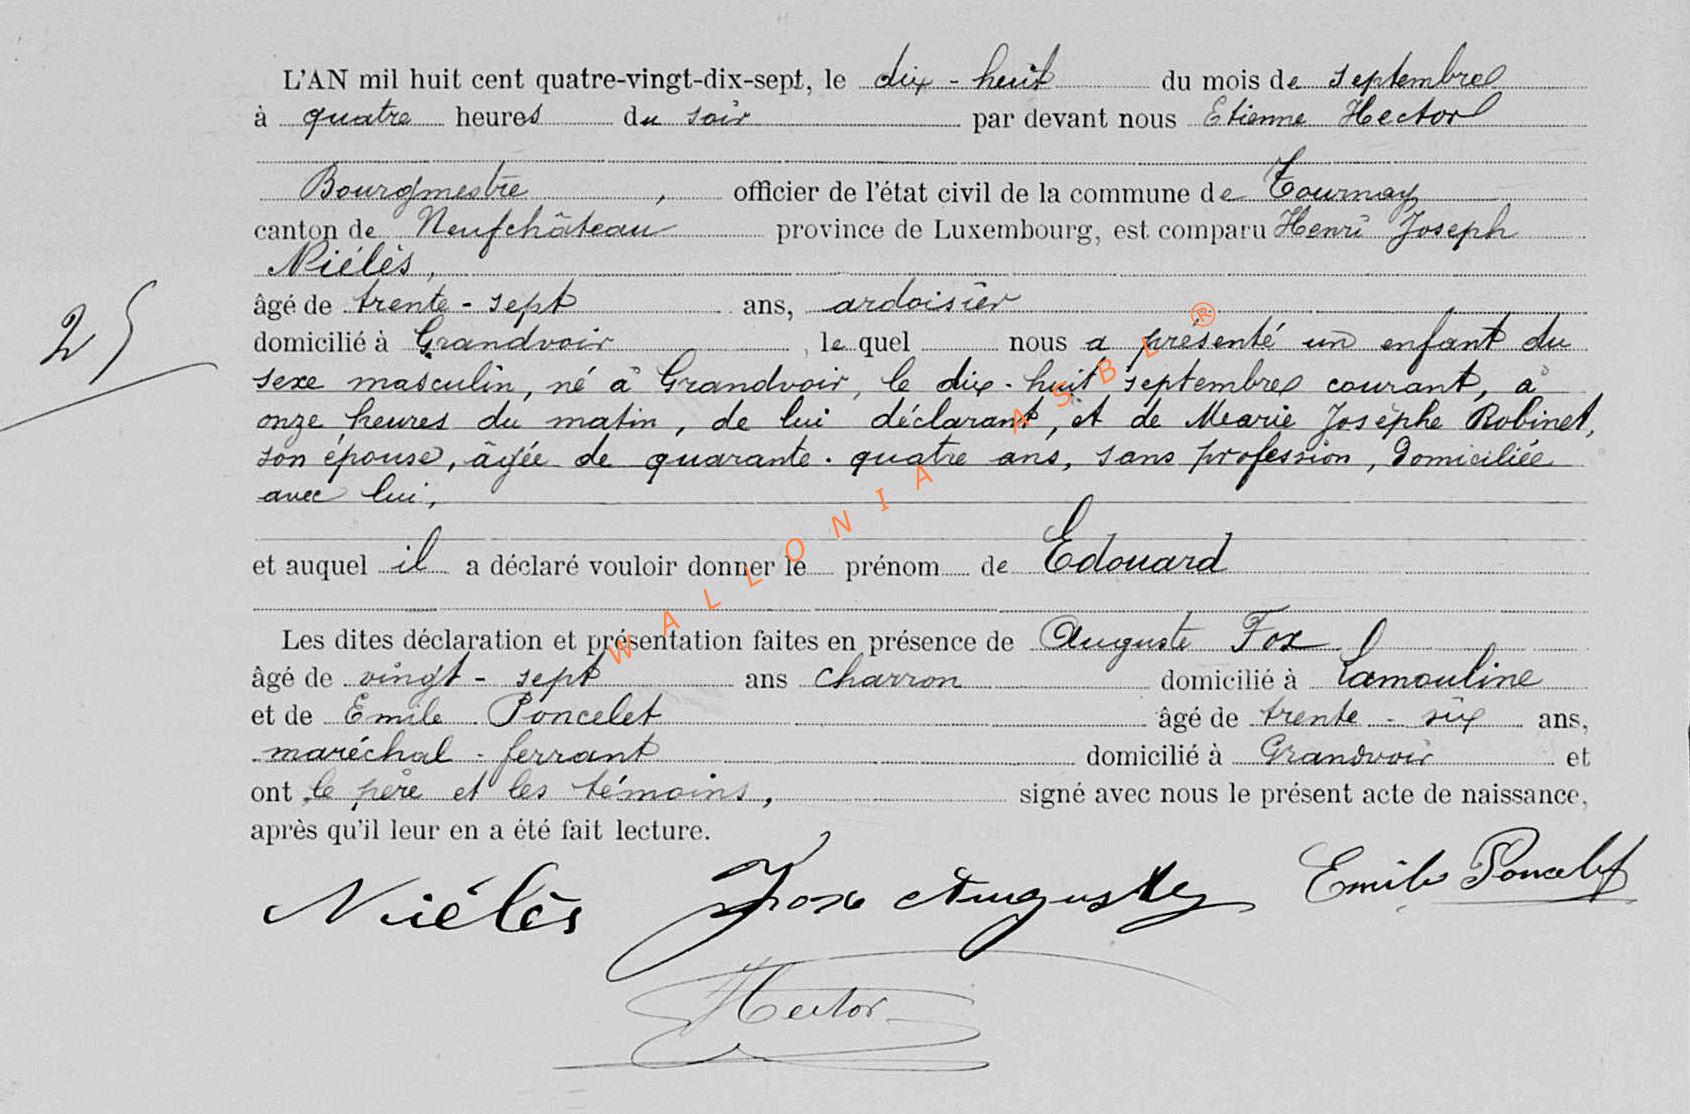 L'AN mil huit cent quatre-vingt-dix-sept, le dix-huit du mois de septembre
à quatre heures du soir par devant nous Etienne Hector
Bourgmestre, officier de l'état civil de la commune de Tournay
canton de Neufchâteau province de Luxembourg, est comparu Henri Joseph
Niélès,
âgé de trente-sept ans, ardoisier
domicilié à Grandvoir, le quel nous a présenté un enfant du
sexe masculin, né à Grandvoir, le dix-huit septembre courant, à
onze heures du matin, de lui déclarant, et de Marie Josèphe Robinet,
son épouse, âgée de quarante-quatre ans, sans profession, domiciliée
avec lui,
et auquel il a déclaré vouloir donner le prénom de Edouard
Les dites déclaration et présentation faites en présence de Auguste Fox
âgé de vingt-sept ans charron domicilié à Lamouline
et de Emile Poncelet âgé de trente-six ans,
maréchal-ferrant domicilié à Grandvoir et
ont le père et les témoins, signé avec nous le présent acte de naissance,
après qu'il leur en a été fait lecture.
25
Niélès Fox Auguste Emile Poncelet
Hector
WALLONIA ASBL ®